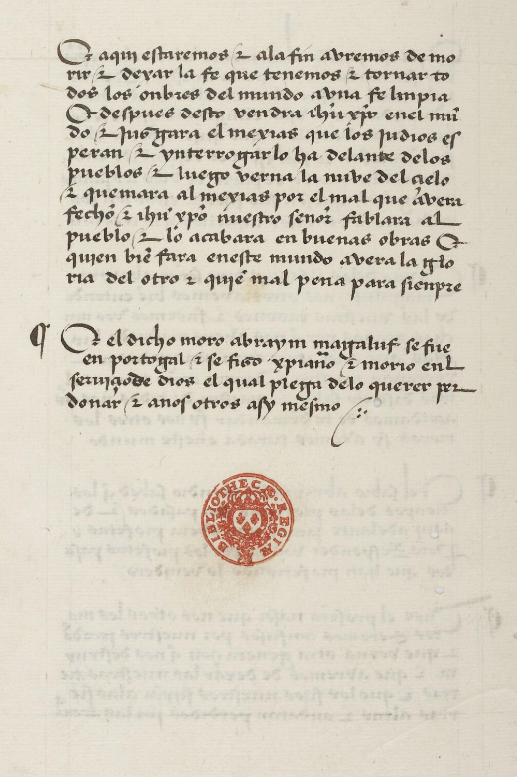 Et aqui estaremos & ala fin avremos de mo
rir & dexar la fe que tenemos & tornar to
dos los onbres del mundo avna fe linpia
Et despues desto vendra ihũ xp̃o enel mũ
do & Jusgara el mexias que los iudios es
peran & ynterrogarlo ha delante delos
pueblos & luego verna la nuve del cielo
& quemara al mexias por el mal que avera
fechõ & ihũ xp̃o nuestro señor fablara al
pueblo & lo acabara en buenas obras Et
quien biẽ fara eneste mundo avera la glo
ria del otro & quiẽ mal pena para sienpre
¶ Et el dicho moro abraym magaluf se fue
en portogal & se fiso xp̃iano & morio enl
serviçiode dios el qual plega delo querer per
donar & anos otros asy mesmo
BIBLIOTHECÆ REGIÆ